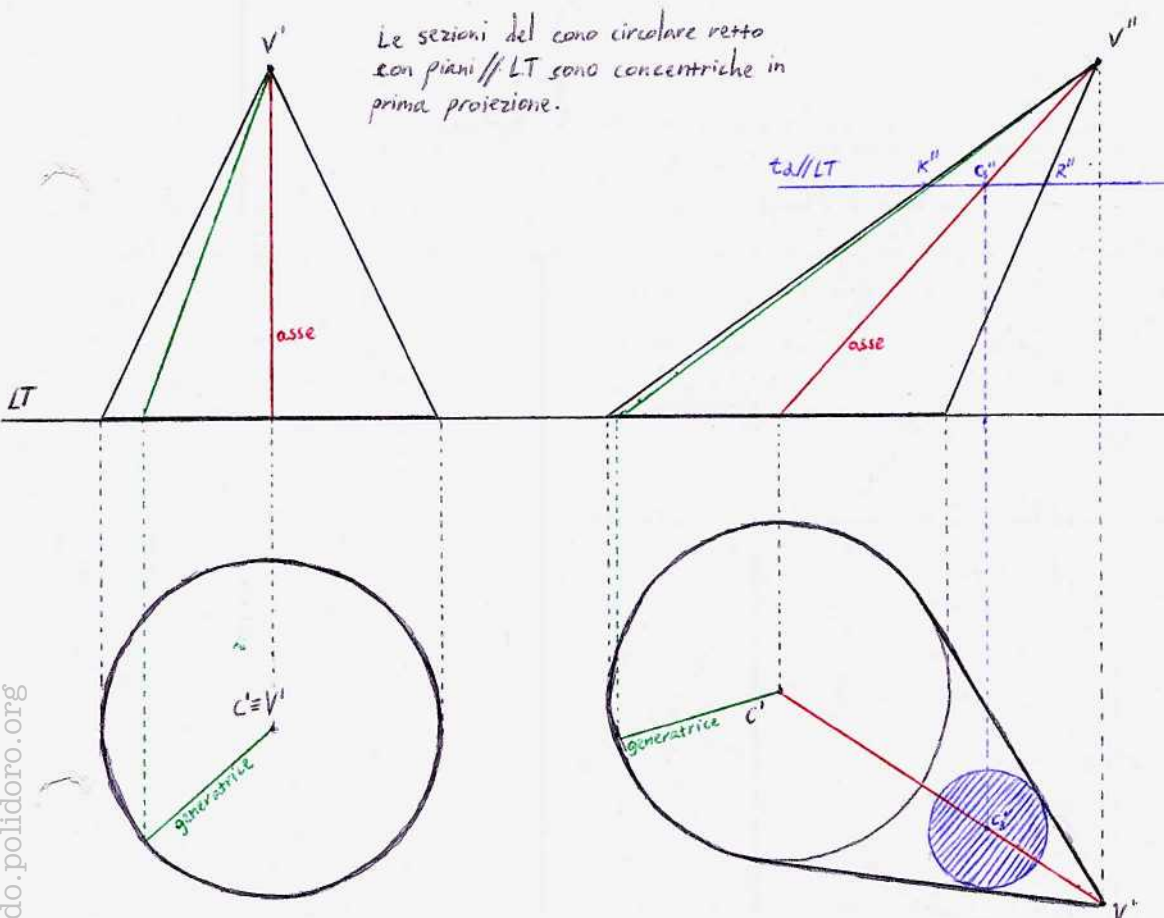 V'
Le sezioni del cono circolare retto
con piani // LT sono concentriche in
prima proiezione.
V''
tα//LT
K''
R''
asse
asse
LT
C'≡V'
generatrice
C'
generatrice
V'
do.polidoro.org